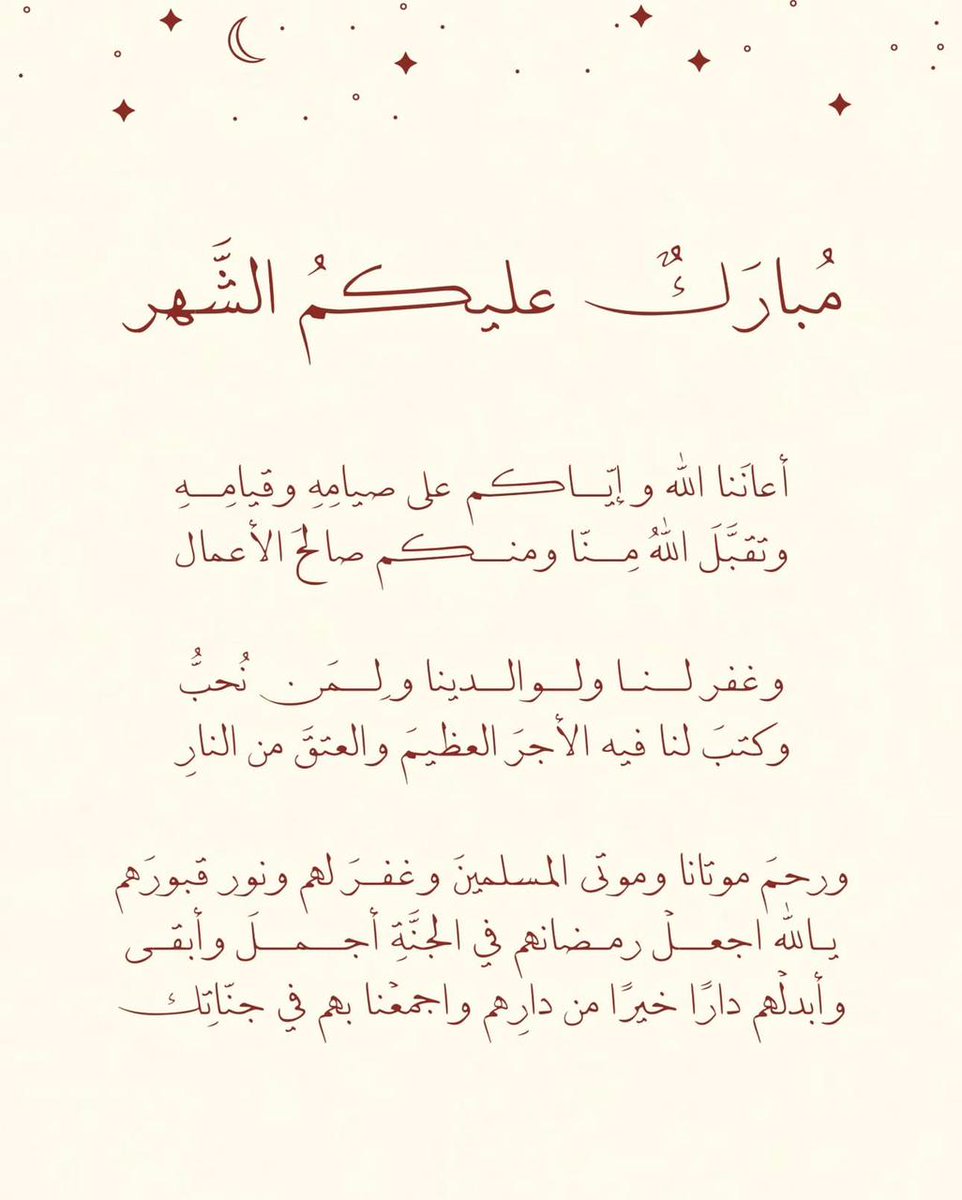 مُبارَكٌ عليكمُ الشَّهر
أعانَنا الله و إيّاكم على صيامِهِ وقيامِهِ
وتقبَّلَ اللهُ مِنّا ومنكم صالحَ الأعمال
وغفر لنا ولوالدينا ولِمَن نُحبُّ
وكتبَ لنا فيه الأجرَ العظيمَ والعتقَ من النارِ
ورحمَ موتانا وموتى المسلمينَ وغفرَ لهم ونور قبورَهم
يالله اجعلْ رمضانهم في الجنَّةِ أجملَ وأبقى
وأبدلْهم دارًا خيرًا من دارِهم واجمعْنا بهم في جنّاتِك